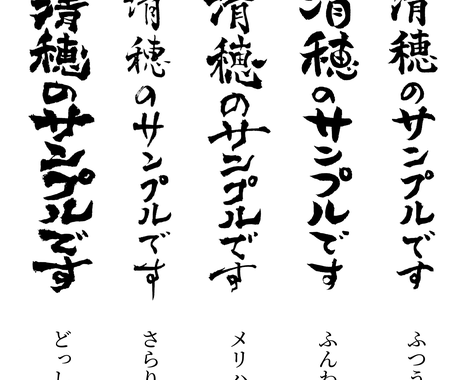 清穂のサンプルです
ふつう
清穂のサンプルです
ふんわ
清穂のサンプルです
メリハ
清穂のサンプルです
さらり
清穂のサンプルです
どっし